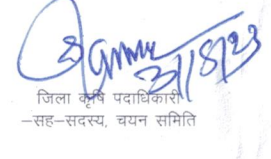 जिला कृषि पदाधिकारी
–सह–सदस्य, चयन समिति